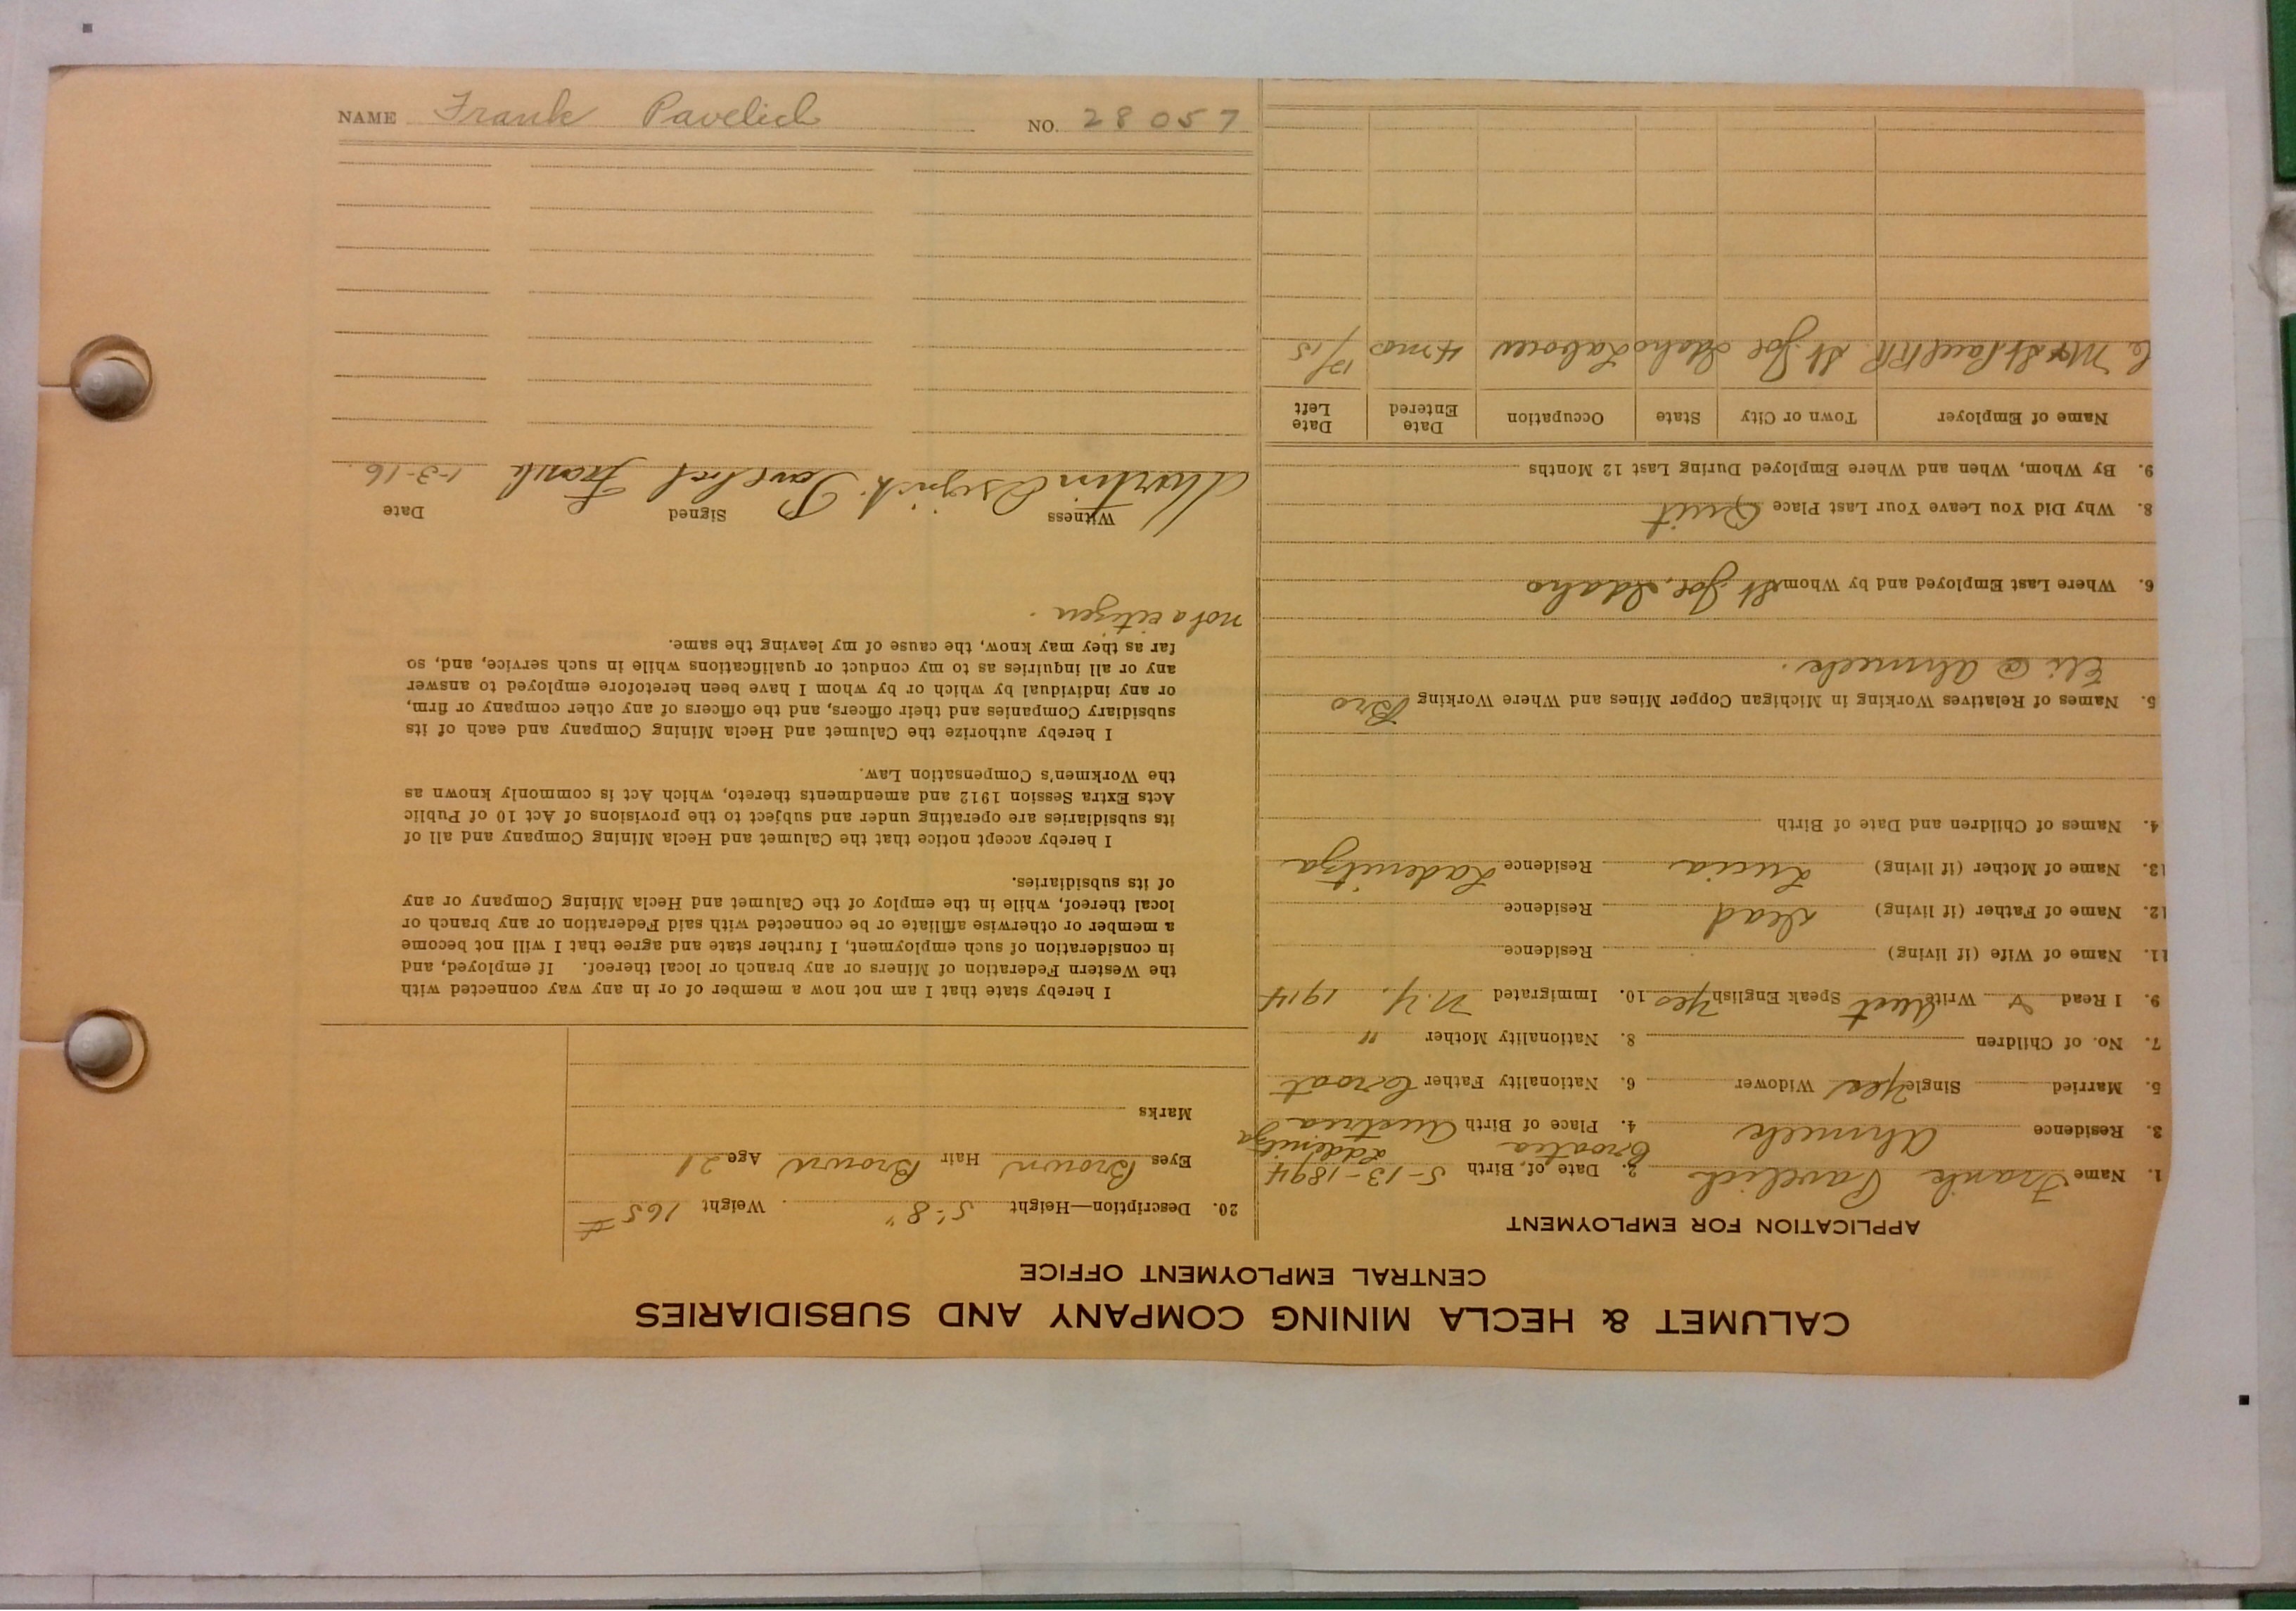 CALUMET & HECLA MINING COMPANY AND SUBSIDIARIES
CENTRAL EMPLOYMENT OFFICE
APPLICATION FOR EMPLOYMENT
1. Name Frank Pavelich 2. Date of Birth 5-13-1894
Croatia
3. Residence Ahmeek 4. Place of Birth Austria
5. Married Single Yes Widower 6. Nationality Father Croat
7. No. of Children 8. Nationality Mother "
9. I Read Write Aust Speak English Yes 10. Immigrated N.Y. 1914
11. Name of Wife (if living) Residence
12. Name of Father (if living) Dead Residence
13. Name of Mother (if living) Lucia Residence Ladenitza
4. Names of Children and Date of Birth
5. Names of Relatives Working in Michigan Copper Mines and Where Working Bro
Eli @ Ahmeek.
6. Where Last Employed and by Whom St Joe, Idaho
8. Why Did You Leave Your Last Place Quit
9. By Whom, When and Where Employed During Last 12 Months
Name of Employer Town or City State Occupation Date Entered Date Left
C. M & St Paul RR. St. Joe Idaho Laborer 4 mos 12/15
20. Description—Height 5'-8" Weight 165#
Eyes Brown Hair Brown Age 21
Marks
I hereby state that I am not now a member of or in any way connected with
the Western Federation of Miners or any branch or local thereof. If employed, and
in consideration of such employment, I further state and agree that I will not become
a member or otherwise affiliate or be connected with said Federation or any branch or
local thereof, while in the employ of the Calumet and Hecla Mining Company or any
of its subsidiaries.
I hereby accept notice that the Calumet and Hecla Mining Company and all of
its subsidiaries are operating under and subject to the provisions of Act 10 of Public
Acts Extra Session 1912 and amendments thereto, which Act is commonly known as
the Workmen's Compensation Law.
I hereby authorize the Calumet and Hecla Mining Company and each of its
subsidiary Companies and their officers, and the officers of any other company or firm,
or any individual by which or by whom I have been heretofore employed to answer
any or all inquiries as to my conduct or qualifications while in such service, and, so
far as they may know, the cause of my leaving the same.
not a citizen.
Witness Signed Date
Martin Frank 1-3-16.
NAME Frank Pavelich NO. 28057